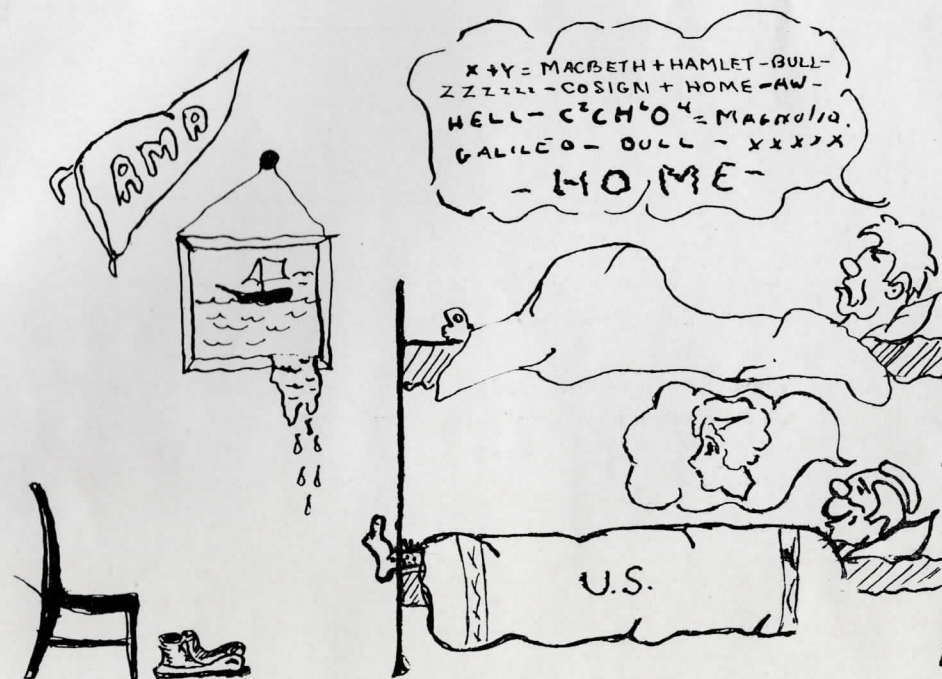 AMA
X+Y = MACBETH + HAMLET - BULL -
ZZZzzzz - COSIGN + HOME - AW -
HELL - C²CH⁶O⁴ = MAGNOLIA.
GALILEO - BULL - XXXXX
- HOME -
U.S.